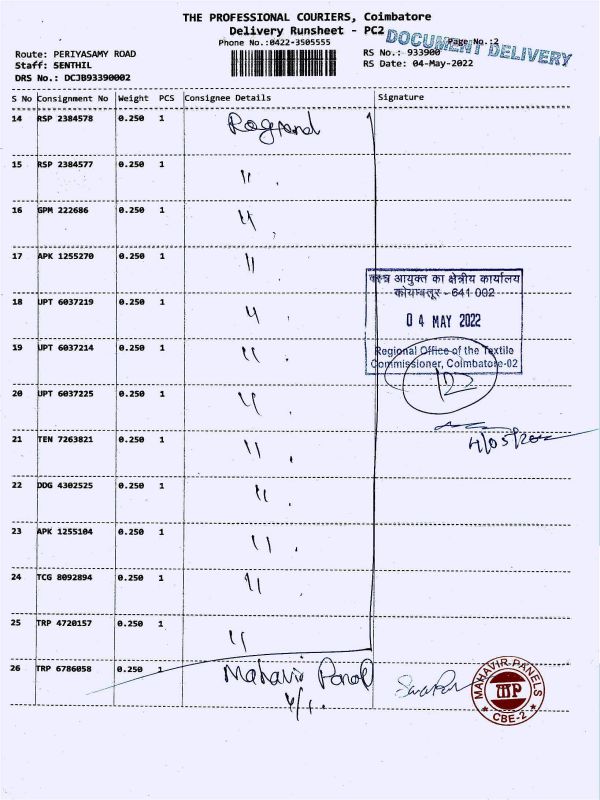 THE PROFESSIONAL COURIERS, Coimbatore
Delivery Runsheet - PC2
Phone No.:0422-3505555
Page No.:2
DOCUMENT DELIVERY
Route: PERIYASAMY ROAD
Staff: SENTHIL
DRS No.: DCJB93390002
RS No.: 933900
RS Date: 04-May-2022
S No Consignment No Weight PCS Consignee Details Signature
14 RSP 2384578 0.250 1
15 RSP 2384577 0.250 1 "
16 GPM 222686 0.250 1 "
17 APK 1255270 0.250 1 "
18 UPT 6037219 0.250 1 "
19 UPT 6037214 0.250 1 "
20 UPT 6037225 0.250 1 "
21 TEN 7263821 0.250 1 "
22 DDG 4302525 0.250 1 "
23 APK 1255104 0.250 1 "
24 TCG 8092894 0.250 1 "
25 TRP 4720157 0.250 1 "
26 TRP 6786058 0.250 1 Mahavir Panel
वस्त्र आयुक्त का क्षेत्रीय कार्यालय
कोयम्बतूर - 641 002
04 MAY 2022
Regional Office of the Textile
Commissioner, Coimbatore-02
12
MAHAVIR PANELS
MP
* CBE-2 *